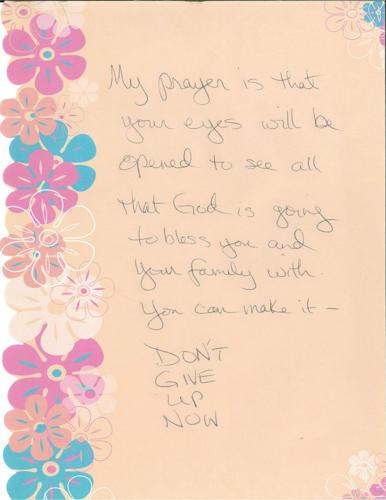 My prayer is that
your eyes will be
opened to see all
that God is going
to bless you and
your family with.
You can make it —
DON'T
GIVE
UP
NOW